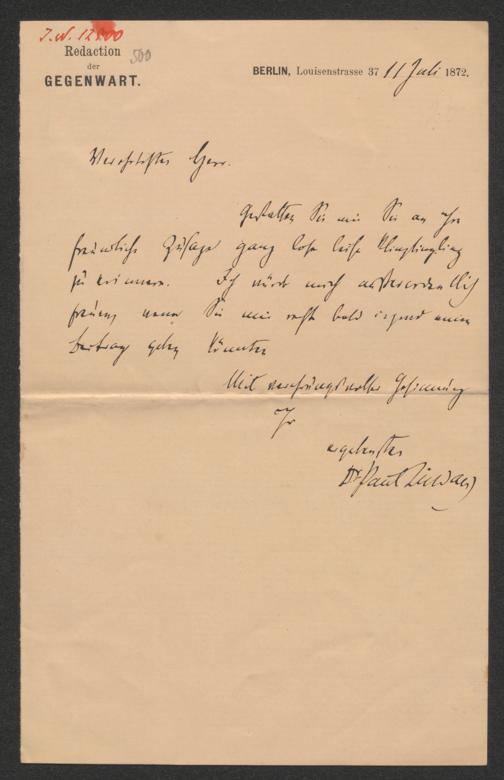 I.N. 12800
500
Redaction
der
GEGENWART.
BERLIN, Louisenstrasse 37 11 Juli 1872.
Verehrtester Herr.
Gestatten Sie mir Sie an Ihre
freundliche Zusage ganz lose leise
zu erinnern. Ich würde mich außerordentlich
freuen, wenn Sie mir recht bald irgend einen
Beitrag geben könnten
Mit verehrungsvoller Gesinnung
Ihr
ergebenster
Dr Paul Lindau